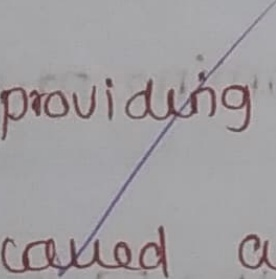 providing
called a